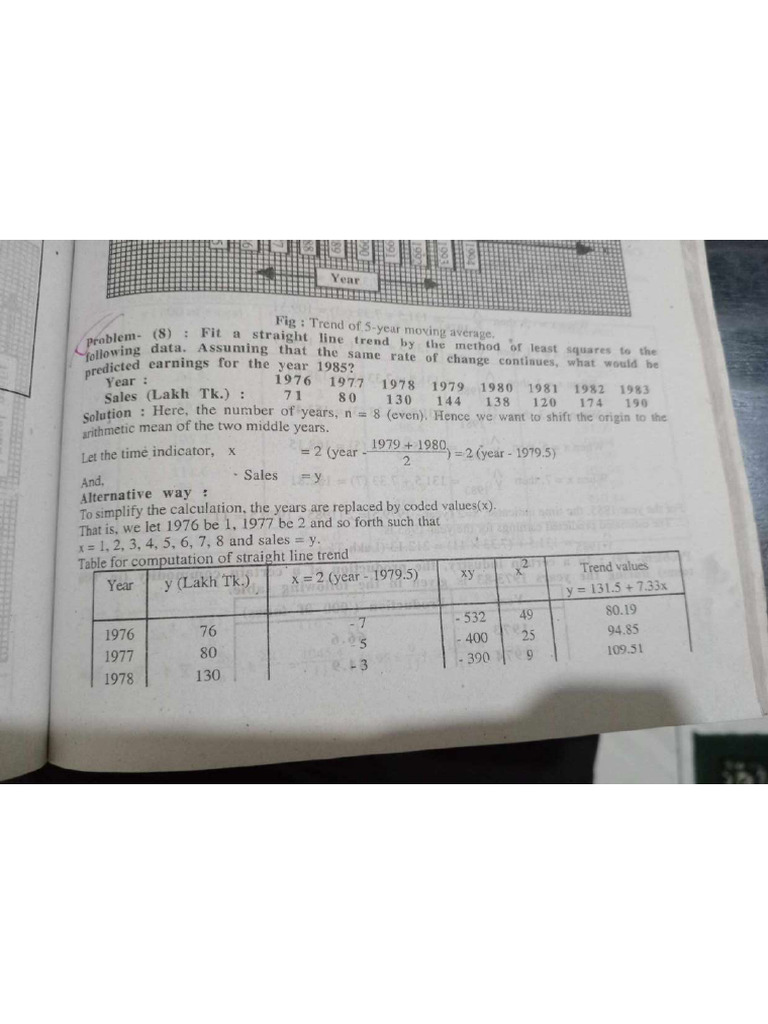 Year
Fig : Trend of 5-year moving average.
Problem- (8) : Fit a straight line trend by the method of least squares to the
following data. Assuming that the same rate of change continues, what would be
predicted earnings for the year 1985?
Year : 1976 1977 1978 1979 1980 1981 1982 1983
Sales (Lakh Tk.) : 71 80 130 144 138 120 174 190
Solution : Here, the number of years, n = 8 (even). Hence we want to shift the origin to the
arithmetic mean of the two middle years.
Let the time indicator, x = 2 (year - 1979 + 1980 / 2) = 2 (year - 1979.5)
And, Sales = y
Alternative way :
To simplify the calculation, the years are replaced by coded values(x).
That is, we let 1976 be 1, 1977 be 2 and so forth such that
x = 1, 2, 3, 4, 5, 6, 7, 8 and sales = y.
Table for computation of straight line trend
Year y (Lakh Tk.) x = 2 (year - 1979.5) xy x² Trend values
y = 131.5 + 7.33x
1976 76 - 7 - 532 49 80.19
1977 80 - 5 - 400 25 94.85
1978 130 - 3 - 390 9 109.51